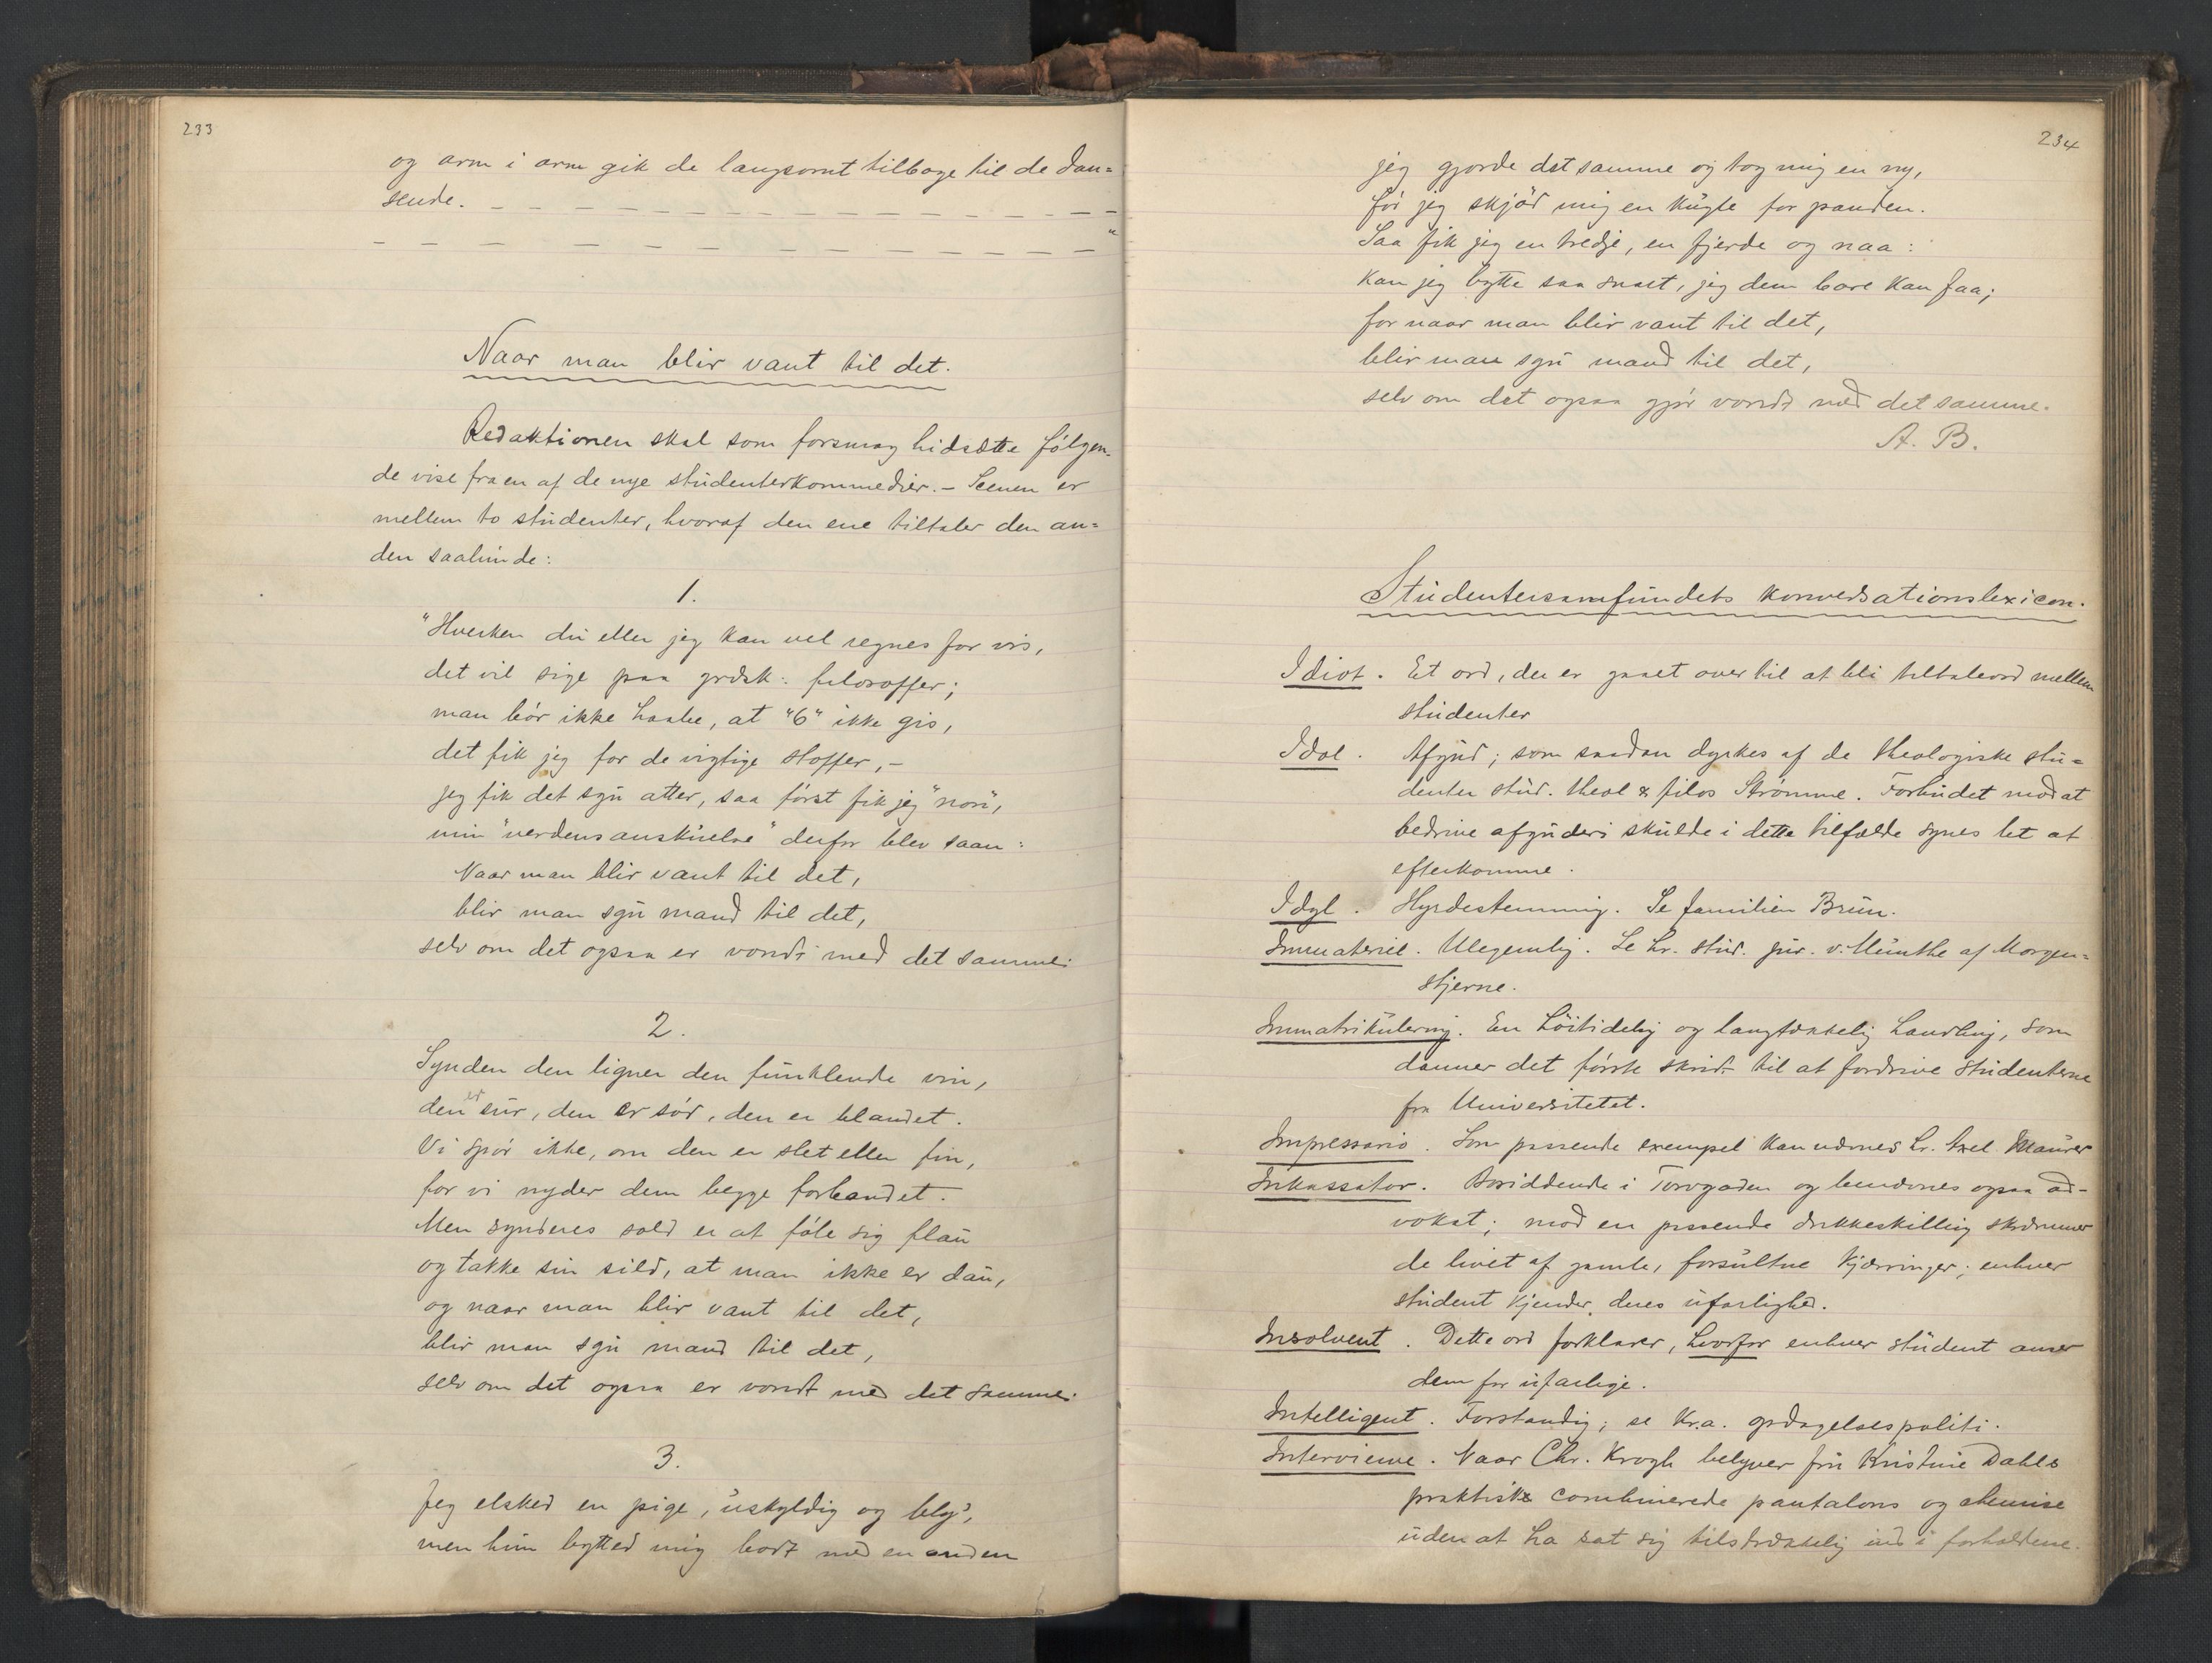 233
og arm i arm gik de langsomt tilbage til de dan=
sende. – – – – – – – – – – – – – – – –
– – – – – – – – – – – – – "
Naar man blir vant til det.
Redaktionen skal som forsmag hidsætte følgen-
de vise fra en af de nye studenterkommedier. – Scenen er
mellem to studenter, hvoraf den ene tiltaler den an=
den saalunde:
1.
"Hverken du eller jeg kan vel regnes for vis,
det vil sige paa græsk: filosoffer;
man bør ikke haabe, at "6" ikke gis,
det fik jeg for de vigtige stoffer, –
jeg fik det sgu atter, saa først fik jeg "non",
min "verdensanskuelse" derfor blev saan:
Naar man blir vant til det,
blir man sgu mand til det,
selv om det ogsaa er vondt med det samme.
2.
Synden den ligner den funklende vin,
den er sur, den er sød, den er blandet.
Vi spør ikke, om den er slet eller fin,
for vi nyder dem begge forbandet.
Men syndens sold er at føle sig flau
og takke sin sild, at man ikke er dau,
og naar man blir vant til det,
blir man sgu mand til det,
selv om det ogsaa er vondt med det samme.
3.
Jeg elsked en pige, uskyldig og bly,
men hun bytted mig bort med en anden
234
jeg gjorde det samme og tog mig en ny,
før jeg skjød mig en kugle for panden.
Saa fik jeg en tredje, en fjerde og naa:
kan jeg bytte saa snart, jeg dem bare kan faa;
for naar man blir vant til det,
blir man sgu mand til det,
selv om det ogsaa gjør vondt med det samme.
A. B.
Studentersamfundets konversationslexicon.
Idiot. Et ord, der er gaaet over til at bli tiltaleord mellem
studenter
Idol. Afgud; som saadan dyrkes af de theologiske stu=
denter stud. theol & filos Strømme. Forbudet mod at
bedrive afguderi skulde i dette tilfælde synes let at
efterkomme.
Idyl. Hyrdestemning. Se familien Brun.
Immateriel. Ulegemlig. Se hr. stud. jur. v. Munthe af Morgen=
stjerne.
Immatrikulering. En høitidelig og langtækkelig handling, som
danner det første skridt til at fordrive studenterne
fra Universitetet.
Impressario. Som passende exempel kan nævnes hr. Axel Maurer
Inkassator. Boriddende i Torvgaden og benævnes ogsaa ad-
vokat; mod en passende drikkeskilling skræmmer
de livet af gamle, forsultne kjærringer; enhver
student kjender deres ufarlighed.
Insolvent. Dette ord forklarer, hvorfor enhver student anser
dem for ufarlige.
Intelligent. Forstandig; se Kr.a. opdagelsespoliti.
Interviewe. Naar Chr. Krogh belyver fru Kristine Dahls
praktiske combinerede pantalons og chemise
uden at ha sat sig tilstrækkelig ind i forholdene.